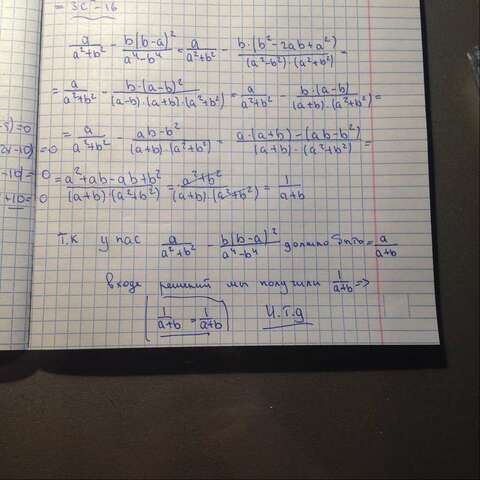 = 3c - 16
a/(a²+b²) - b(b-a)²/(a⁴-b⁴) = a/(a²+b²) - b·(b²-2ab+a²)/((a²-b²)·(a²+b²)) =
= a/(a²+b²) - b·(a-b)²/((a-b)·(a+b)·(a²+b²)) = a/(a²+b²) - b·(a-b)/((a+b)·(a²+b²)) =
= a/(a²+b²) - (ab-b²)/((a+b)·(a²+b²)) = (a·(a+b)-(ab-b²))/((a+b)·(a²+b²)) =
= (a²+ab-ab+b²)/((a+b)·(a²+b²)) = (a²+b²)/((a+b)·(a²+b²)) = 1/(a+b)
Т.к у нас a/(a²+b²) - b(b-a)²/(a⁴-b⁴) должно быть = a/(a+b)
в ходе решений мы получили 1/(a+b) =>
1/(a+b) = 1/(a+b) Ч.т.д
)=0
-10)=0
-10)=0
+10=0